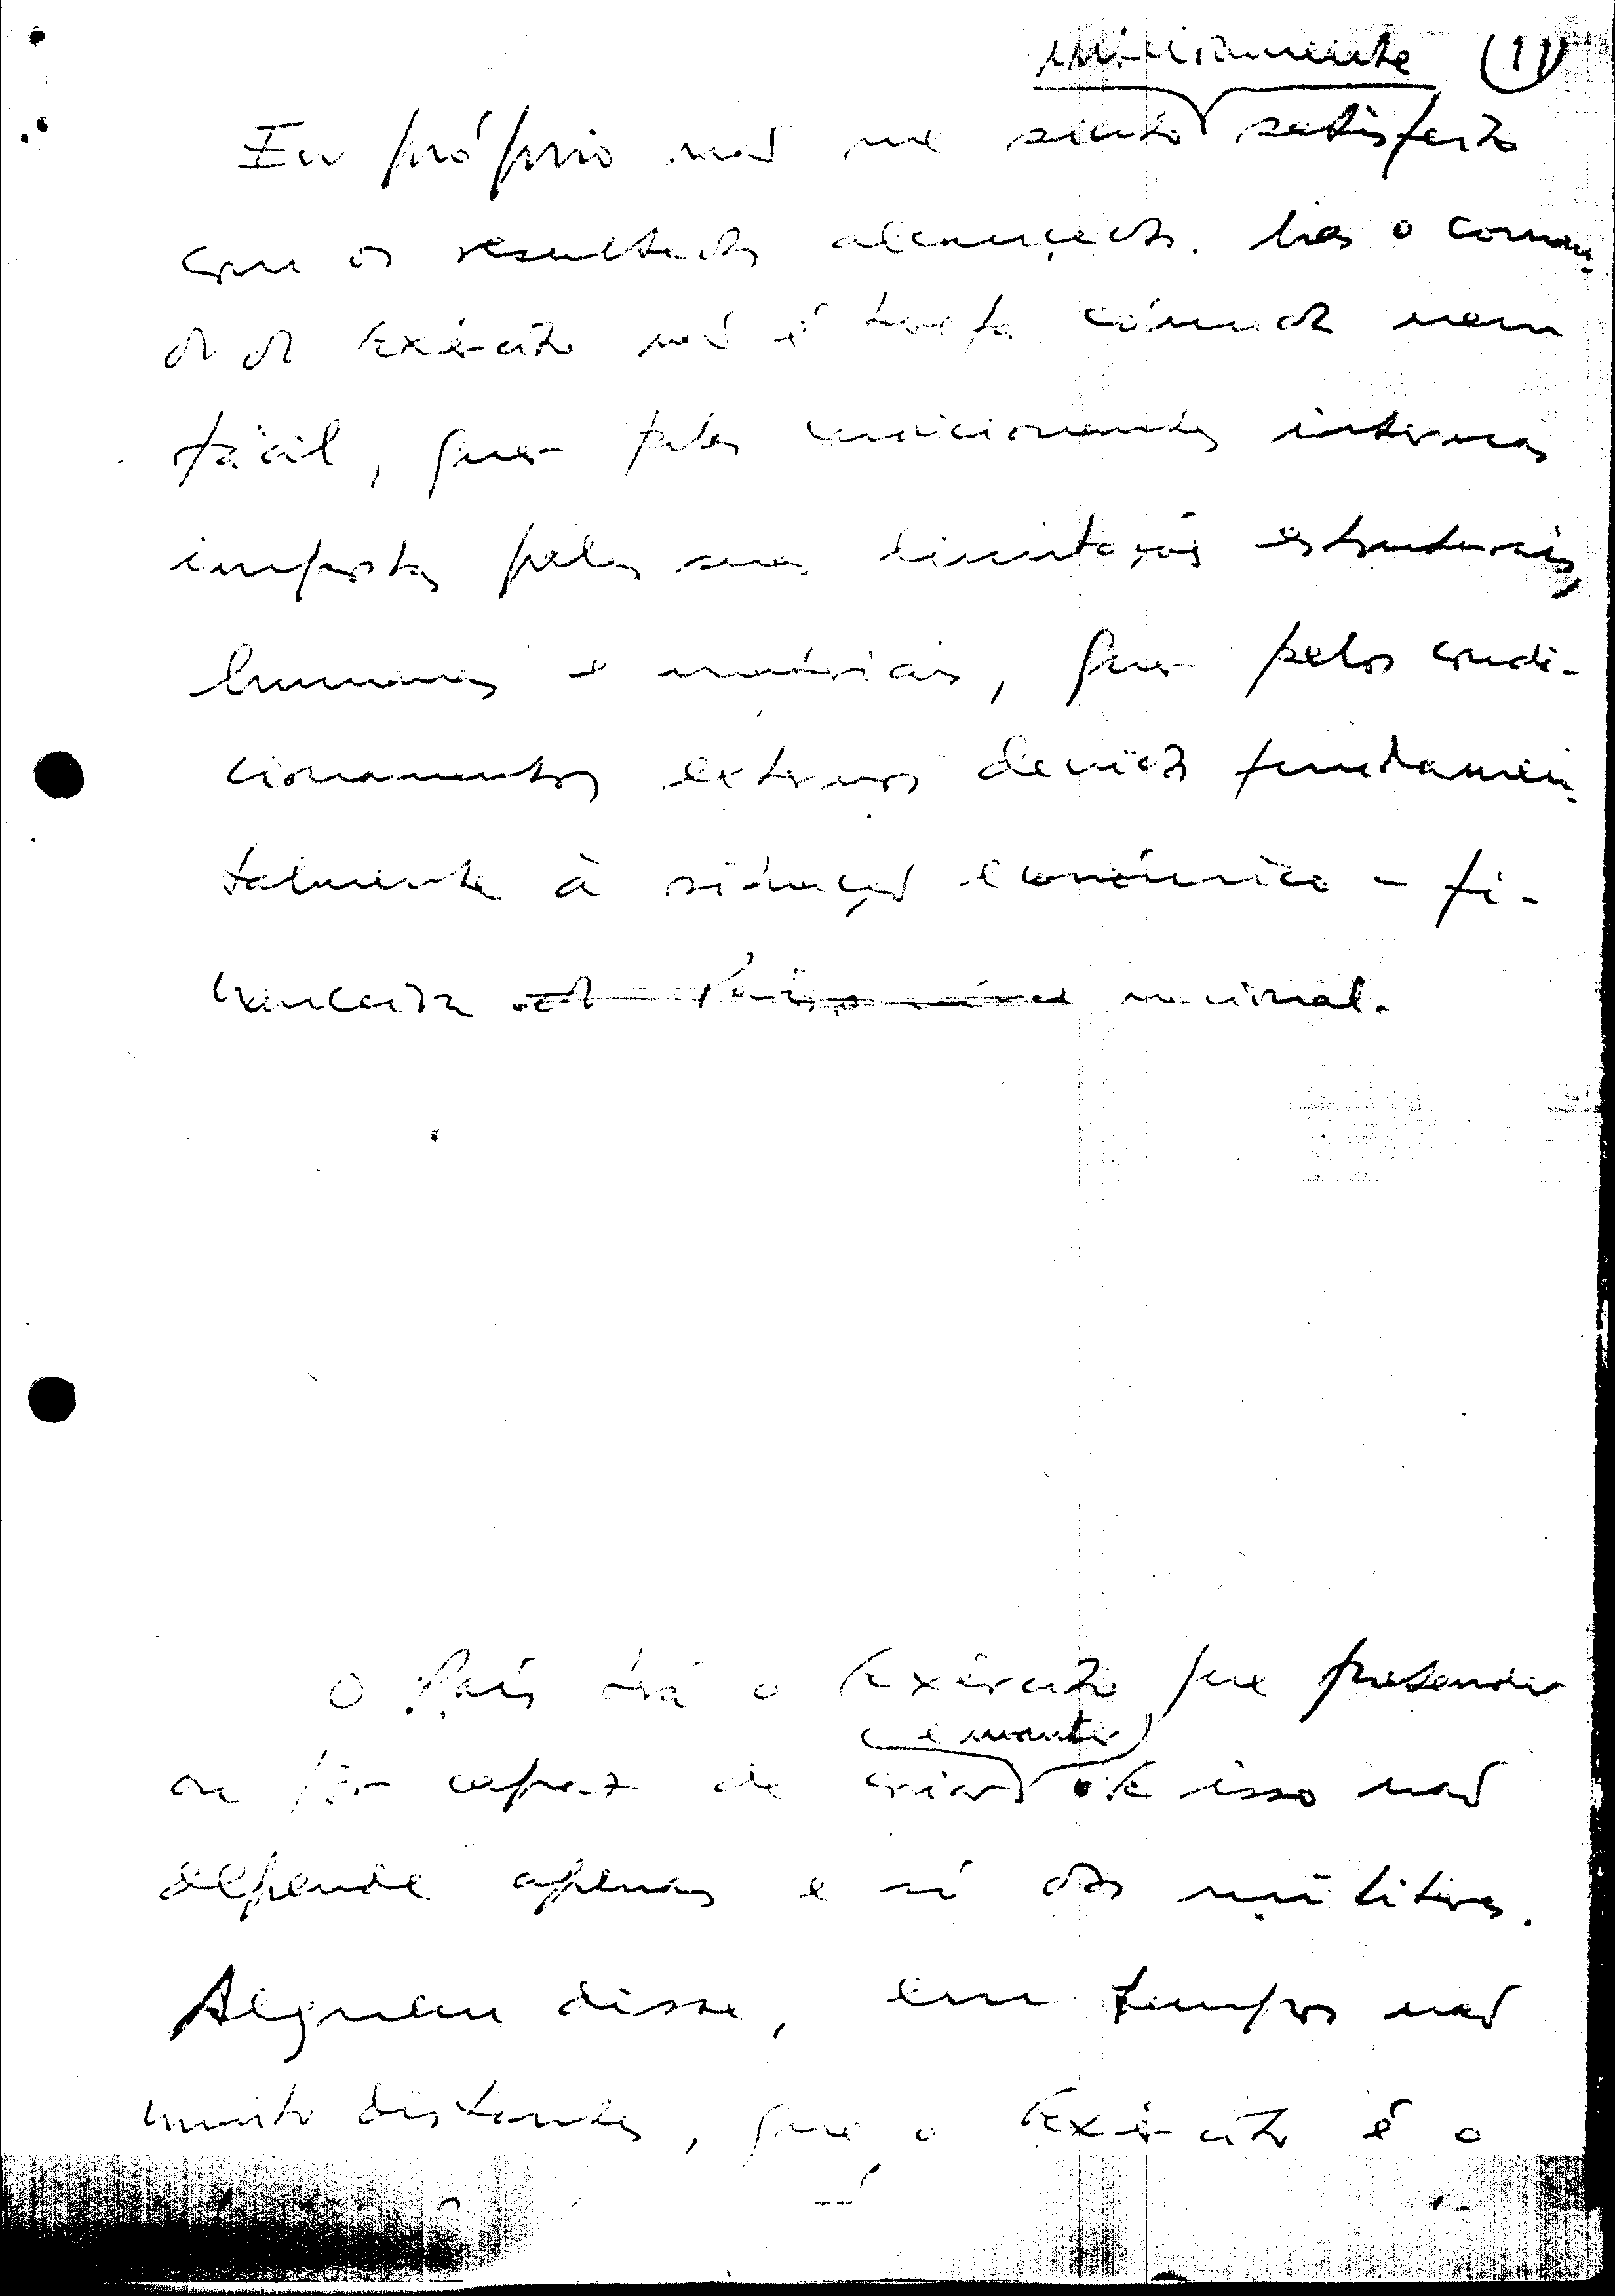 (1)
Eu próprio não me sinto satisfeito
com os resultados alcançados. Mas o coman-
do do Exército não é tarefa cómoda nem
fácil, quer pelas condicionantes internas
impostas pelas suas limitações estruturais,
humanas e materiais, quer pelos condi-
cionamentos externos devido fundamen-
talmente à situação económico-fi-
nanceira nacional.
O País terá o Exército que pretender
e manter
ou fôr capaz de criar e isso não
depende apenas e só dos militares.
Alguém disse, em tempos não
muito distantes, que o Exército é o